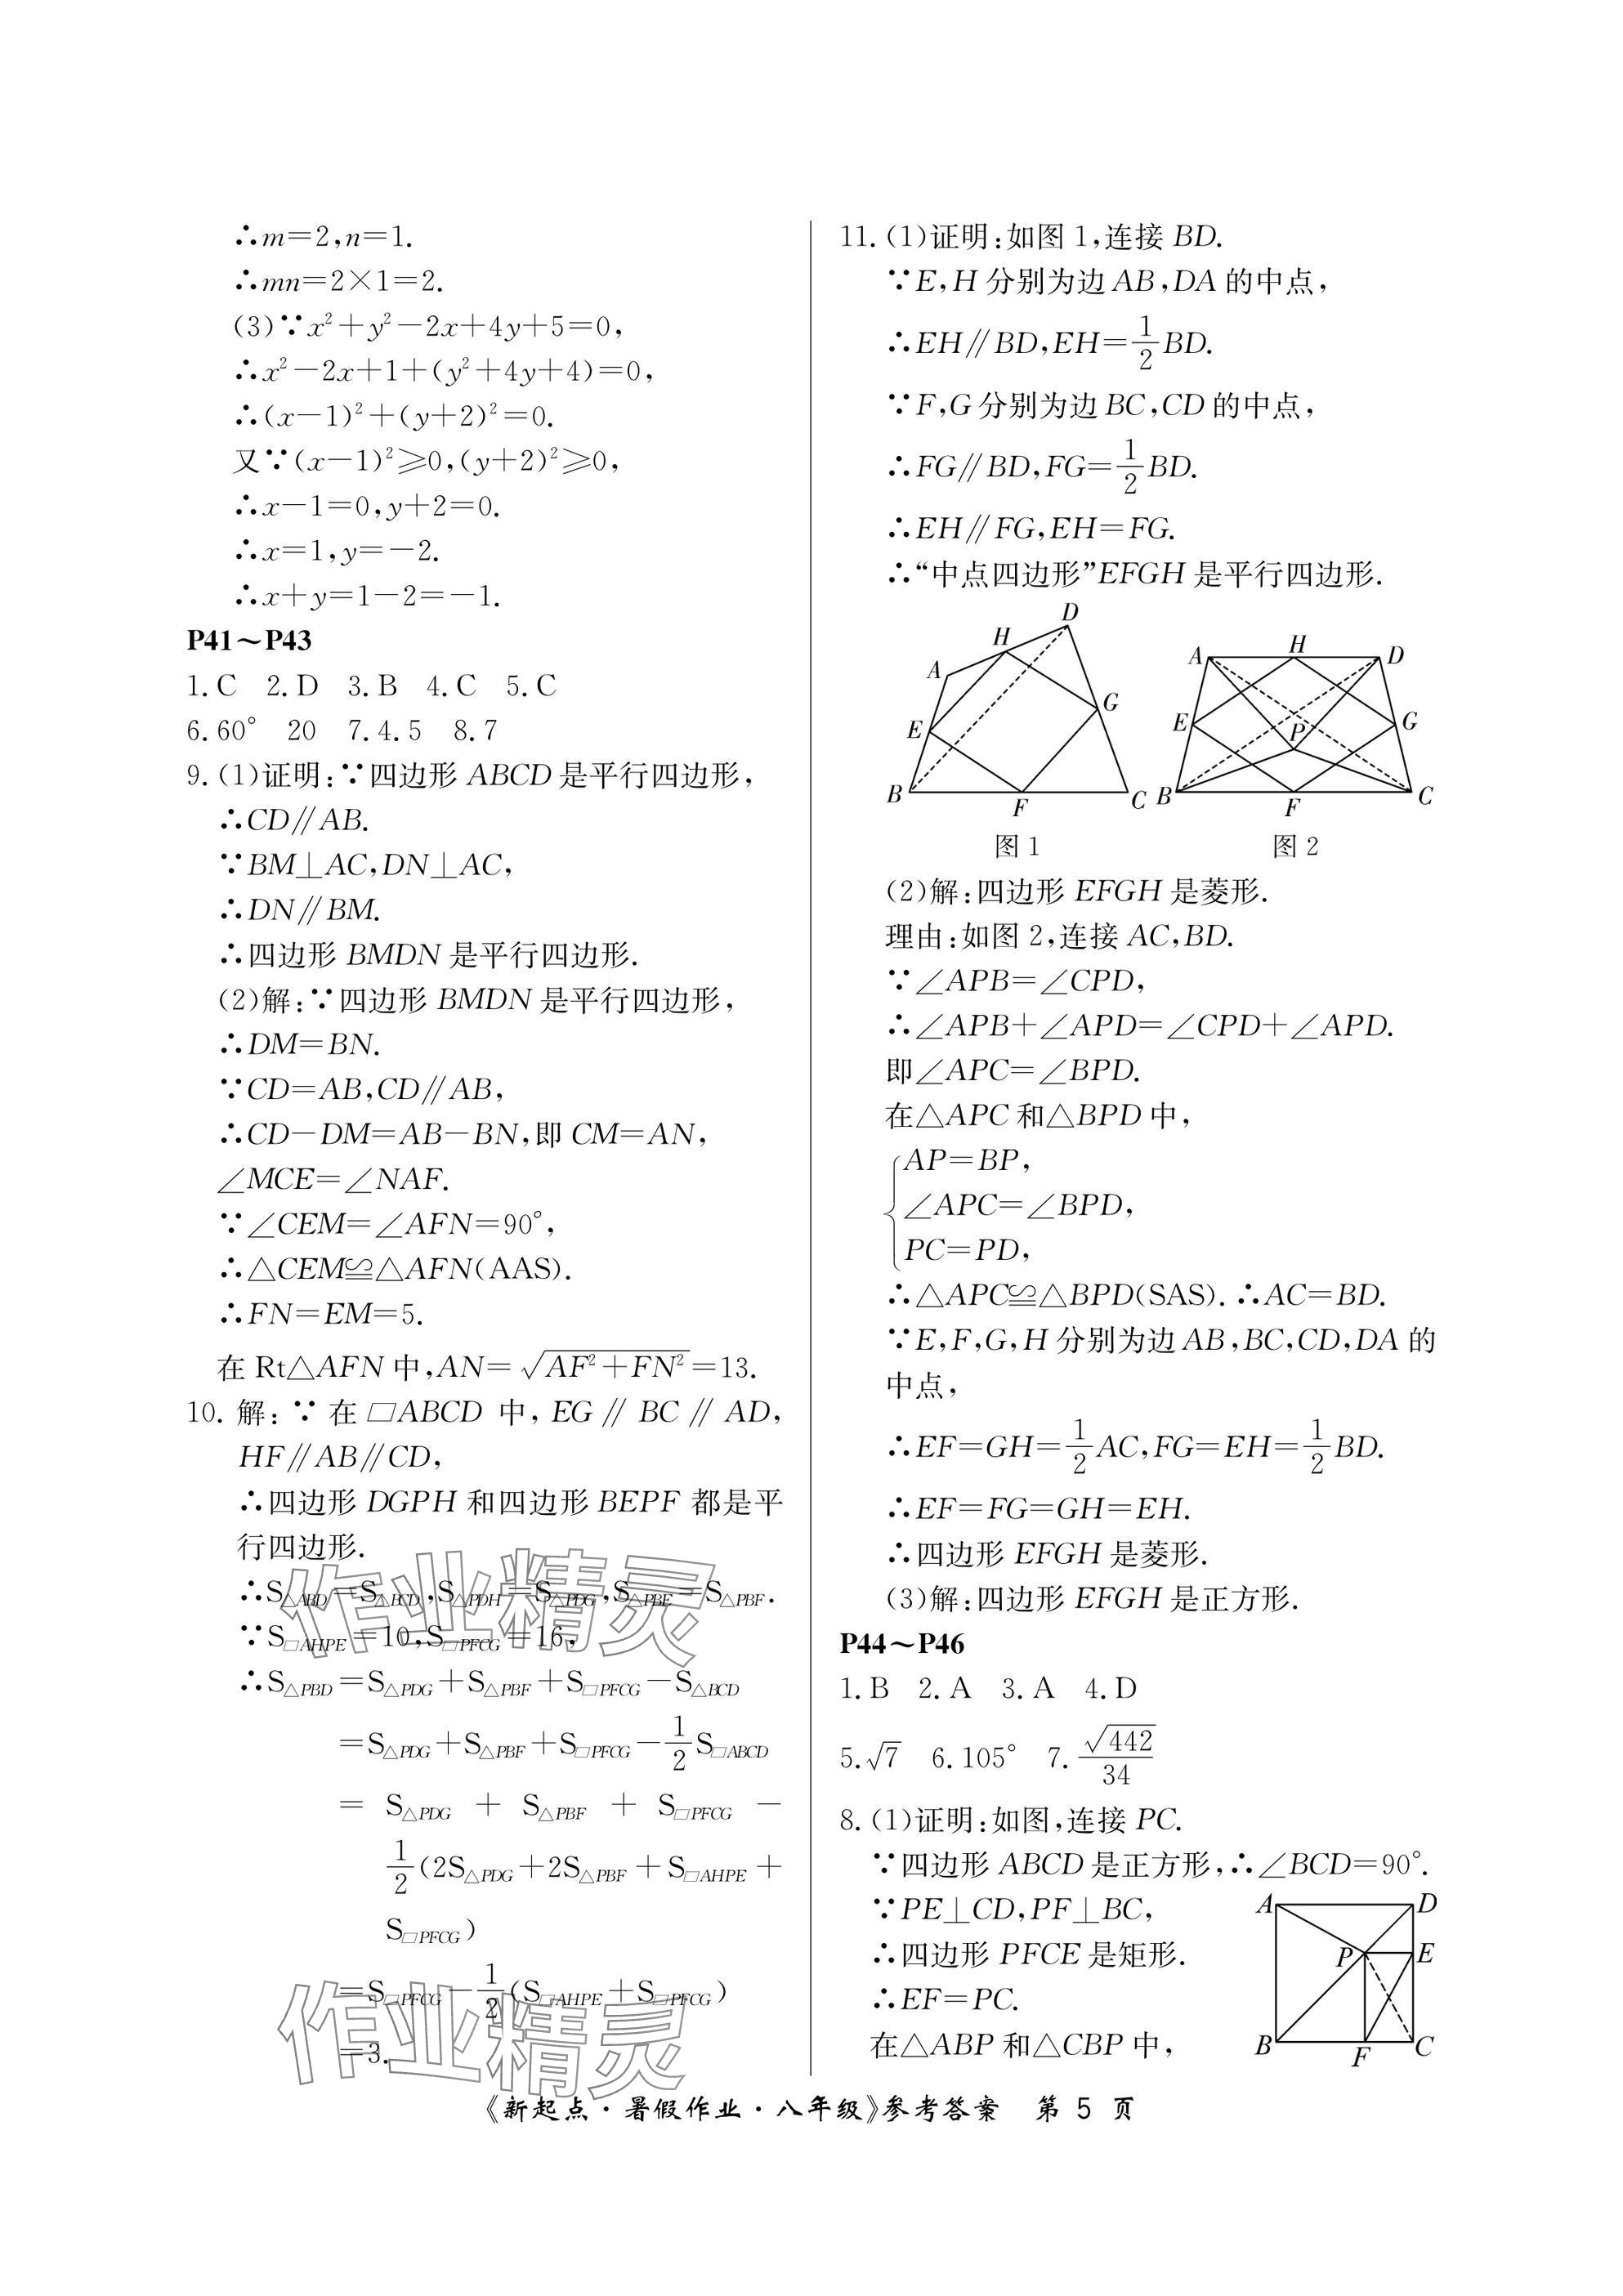 ∴m=2,n=1.
∴mn=2×1=2.
(3)∵x²+y²-2x+4y+5=0,
∴x²-2x+1+(y²+4y+4)=0,
∴(x-1)²+(y+2)²=0.
又∵(x-1)²≥0,(y+2)²≥0,
∴x-1=0,y+2=0.
∴x=1,y=-2.
∴x+y=1-2=-1.
P41～P43
1.C 2.D 3.B 4.C 5.C
6.60° 20 7.4.5 8.7
9.(1)证明:∵四边形ABCD是平行四边形,
∴CD∥AB.
∵BM⊥AC,DN⊥AC,
∴DN∥BM.
∴四边形BMDN是平行四边形.
(2)解:∵四边形BMDN是平行四边形,
∴DM=BN.
∵CD=AB,CD∥AB,
∴CD-DM=AB-BN,即CM=AN,
∠MCE=∠NAF.
∵∠CEM=∠AFN=90°,
∴△CEM≌△AFN(AAS).
∴FN=EM=5.
在Rt△AFN中,AN=√(AF²+FN²)=13.
10.解:∵在□ABCD中,EG∥BC∥AD,
HF∥AB∥CD,
∴四边形DGPH和四边形BEPF都是平
行四边形.
∴S△ABD=S△BCD,S△PDH=S△PDG,S△PBE=S△PBF.
∵S□AHPE=10,S□PFCG=16,
∴S△PBD=S△PDG+S△PBF+S□PFCG-S△BCD
=S△PDG+S△PBF+S□PFCG-1/2S□ABCD
= S△PDG + S△PBF + S□PFCG -
1/2(2S△PDG+2S△PBF+S□AHPE+
S□PFCG)
=S□PFCG-1/2(S□AHPE+S□PFCG)
=3.
11.(1)证明:如图1,连接BD.
∵E,H分别为边AB,DA的中点,
∴EH∥BD,EH=1/2BD.
∵F,G分别为边BC,CD的中点,
∴FG∥BD,FG=1/2BD.
∴EH∥FG,EH=FG.
∴“中点四边形”EFGH是平行四边形.
D
H
A
G
E
B
F
C
图1
A
H
D
E
G
P
B
F
C
图2
(2)解:四边形EFGH是菱形.
理由:如图2,连接AC,BD.
∵∠APB=∠CPD,
∴∠APB+∠APD=∠CPD+∠APD.
即∠APC=∠BPD.
在△APC和△BPD中,
AP=BP,
∠APC=∠BPD,
PC=PD,
∴△APC≌△BPD(SAS).∴AC=BD.
∵E,F,G,H分别为边AB,BC,CD,DA的
中点,
∴EF=GH=1/2AC,FG=EH=1/2BD.
∴EF=FG=GH=EH.
∴四边形EFGH是菱形.
(3)解:四边形EFGH是正方形.
P44～P46
1.B 2.A 3.A 4.D
5.√7 6.105° 7.√442/34
8.(1)证明:如图,连接PC.
∵四边形ABCD是正方形,∴∠BCD=90°.
∵PE⊥CD,PF⊥BC,
∴四边形PFCE是矩形.
∴EF=PC.
在△ABP和△CBP中,
A
D
P
E
B
F
C
作业精灵
作业精灵
《新起点·暑假作业·八年级》参考答案 第 5 页